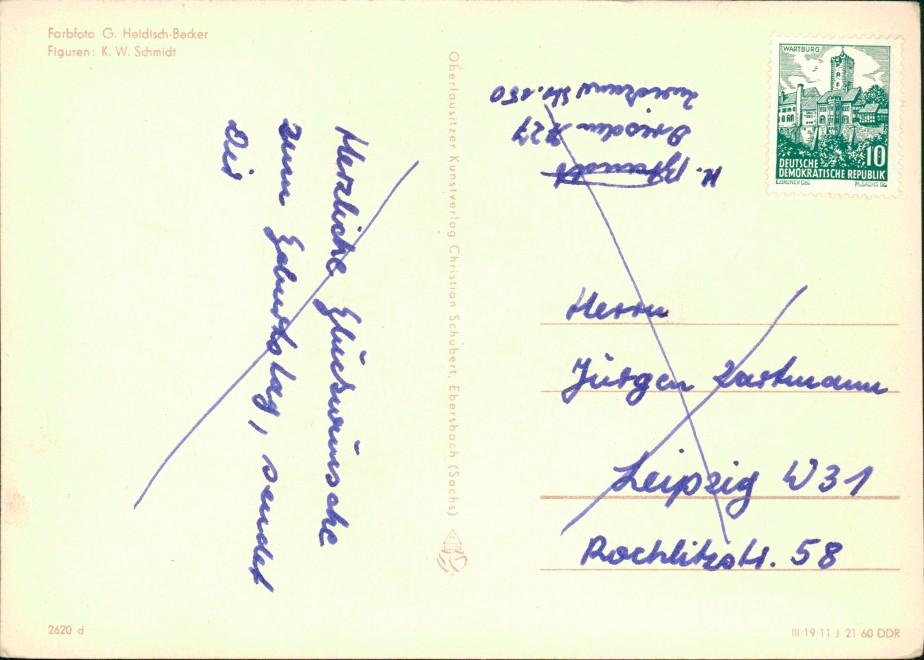 Farbfoto G. Heidisch-Becker
Figuren: K. W. Schmidt
Herzliche Glückwünsche
zum Geburtstag, sendet
Dir
Oberlausitzer Kunstverlag Christian Schubert, Ebersbach (Sachs)
H.
Dresden A 27
Zwickauer Str. 150
WARTBURG
10
DEUTSCHE
DEMOKRATISCHE REPUBLIK
Herrn
Jürgen Hartmann
Leipzig W 31
Rochlitzstr. 58
2620 d
III/19/11 J 21 60 DDR